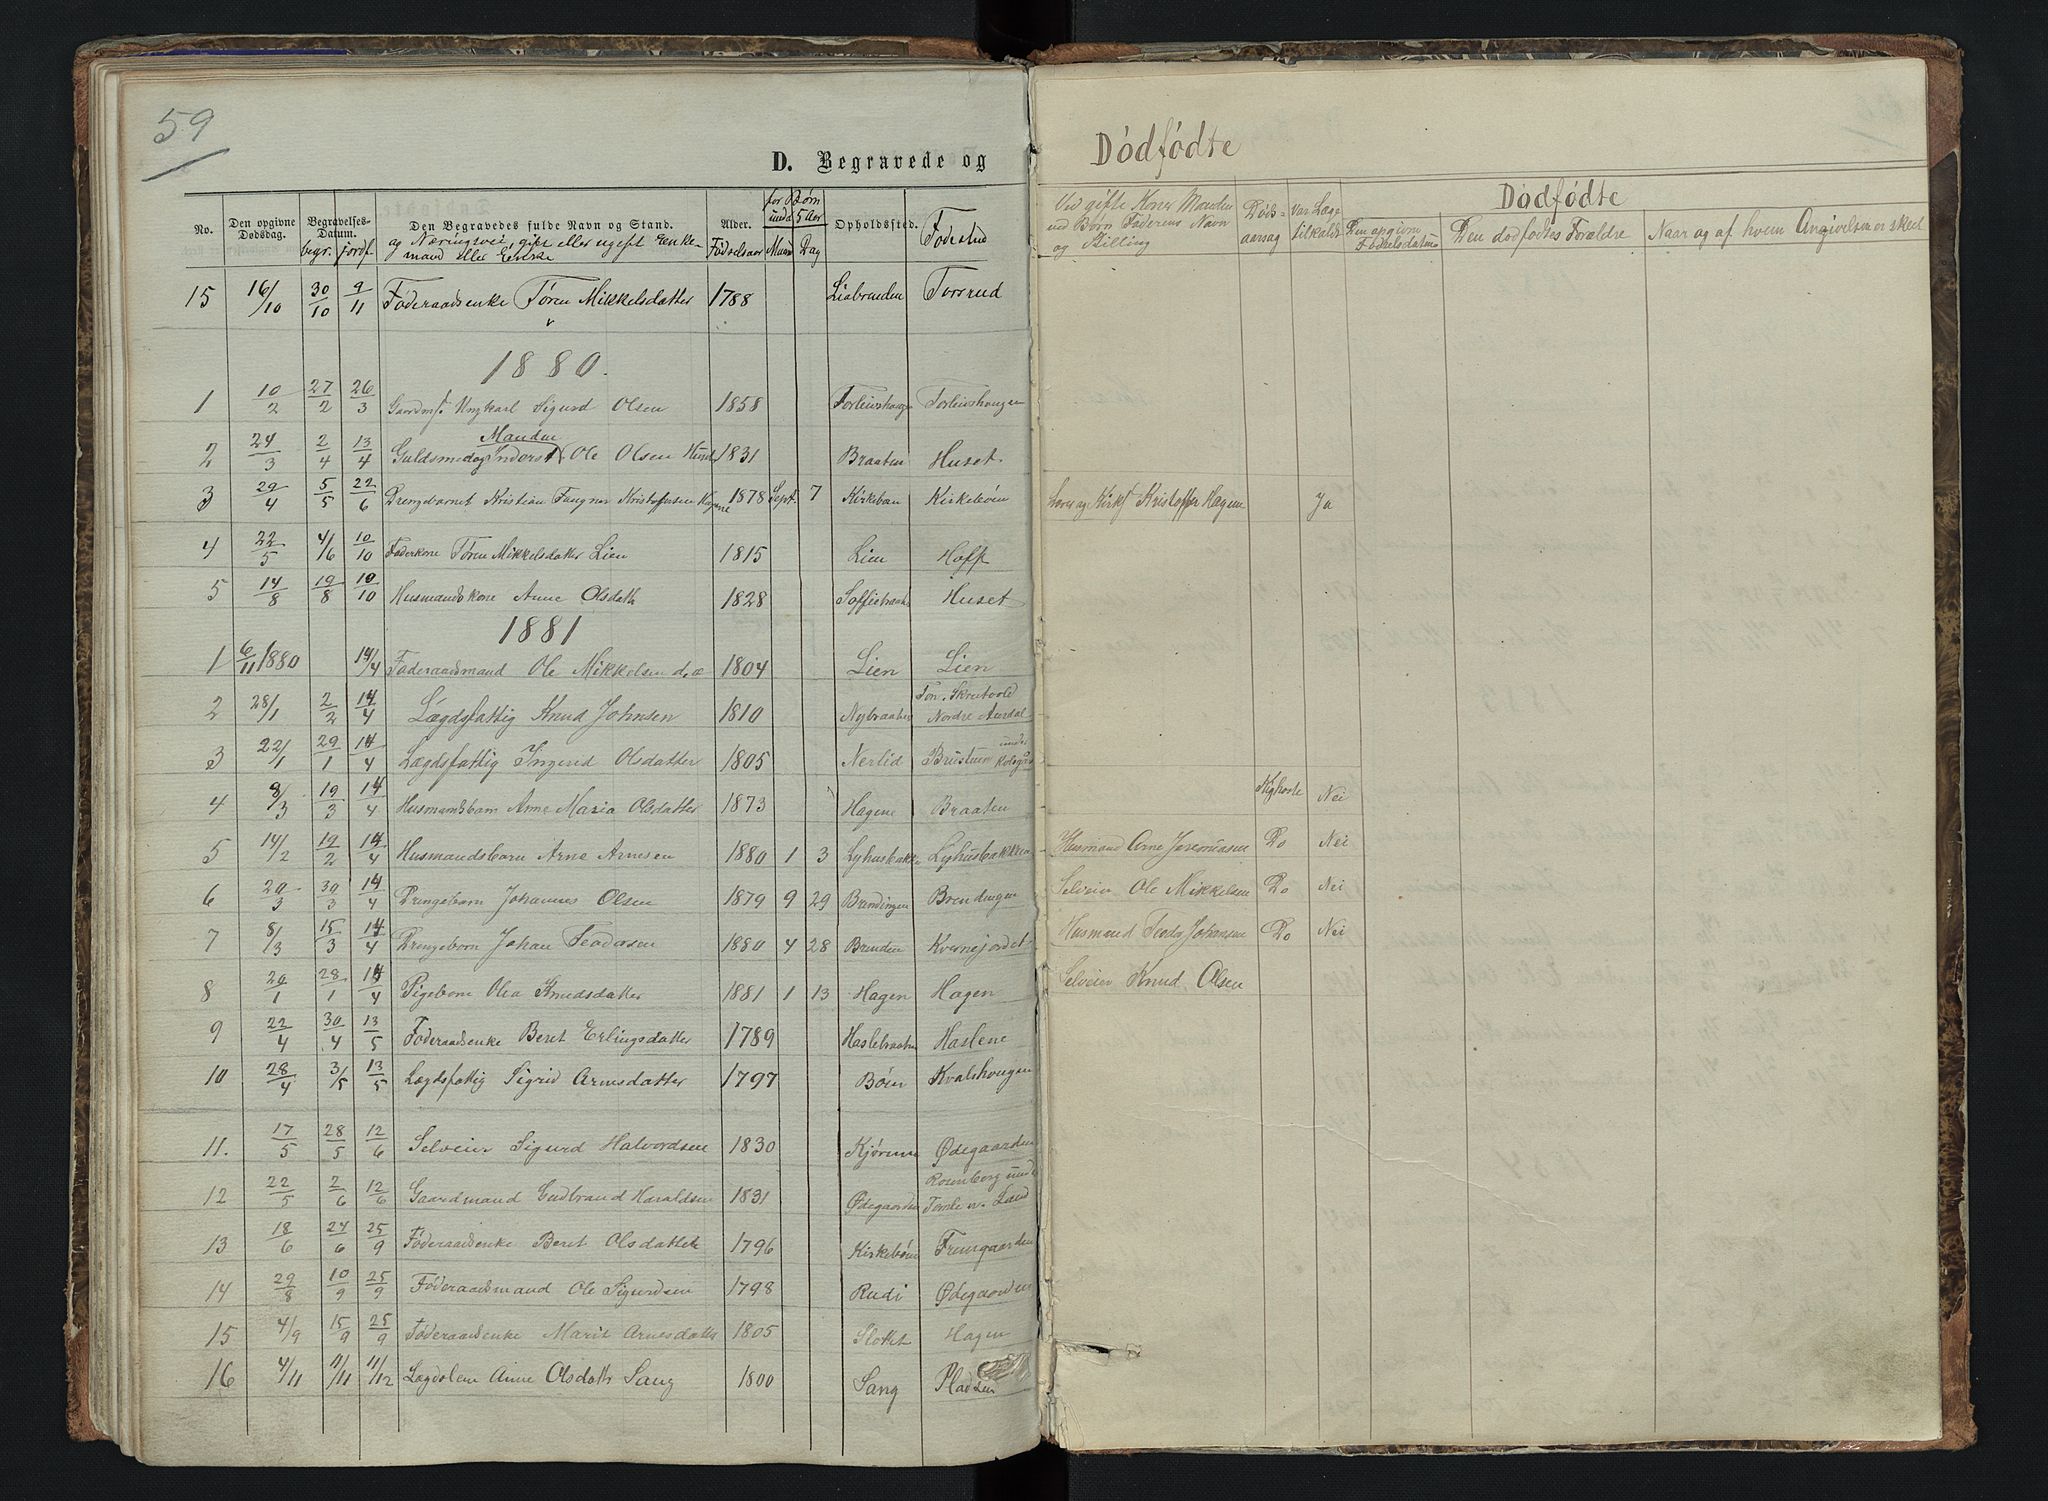 59
D. Begravede og
Dödfödte
No. Den opgivne Dødsdag. Begravelses-Datum. begr. jordf. Den Begravedes fulde Navn og Stand. og Næringsvei, gift eller ugift Enkemand eller Enke Alder. Fødselsaar for Børn under 5 Aar Maan Dag Opholdssted. Fødested
Ved gifte Koner Manden ved Børn Faderens Navn og Stilling Dødsaarsag Var Læge tilkaldt Dödfödte Den opgivne Födselsdatum Den dödfödtes Forældre Naar og af hvem Angivelsen er skeet
15 16/10 30/10 9/11 Föderaadsenke Tören Mikkelsdatter 1788 Liabrenden Torsrud
1880.
1 10/2 27/2 26/3 Gaardmf. Ungkarl Sigurd Olsen 1858 Torleivshaugen Torleivshaugen
2 24/3 2/4 13/4 Guldsmed og Inderst Manden Ole Olsen 1831 Braaten Huset.
3 29/4 5/5 22/6 Drengebarnet Kristian Kristoffersen Hagene 1878 Sept. 7 Kirkebøen Kirkebøen Lærer og Kirkf Kristoffer Hagene Ja
4 22/5 4/6 10/10 Föderkone Tören Mikkelsdatter Lien 1815 Lien Hoff
5 14/8 19/8 10/10 Husmandskone Anne Olsdatt 1828 Soffiebraaten Huset
1881
1 6/11 1880 14/4 Föderaadsmand Ole Mikkelsen d. æ 1804 Lien Lien
2 28/1 2/2 14/4 Lægdsfattig Knud Johnsen 1810 Nybraaten Nordre Aurdal
3 22/1 29/1 14/4 Lægdsfattig Ingerid Olsdatter 1805 Nerlid Brustuen under
4 8/3 19/3 14/4 Husmandsbarn Anne Maria Olsdatter 1873 Hagene Braaten Kighoste Nei
5 14/2 19/2 14/4 Husmandsbarn Arne Arnesen 1880 1 3 Lyhusbakke Lyhusbakken Husmand Arne Jeremiasen Do Nei
6 20/3 30/3 14/4 Drengebarn Johannes Olsen 1879 9 29 Brendingen Brendingen Selveier Ole Mikkelsen Do Nei
7 8/3 15/3 14/4 Drengebarn Johan Teodorsen 1880 4 28 Brenden Kvernejordet Husmand Teodor Johansen Do Nei
8 20/1 28/1 14/4 Pigebarn Olea Knudsdatter 1881 1 13 Hagen Hagen Selveier Knud Olsen
9 22/4 30/4 13/5 Föderaadsenke Beret Erlingsdatter 1789 Haslebraaten Haslene
10 28/4 3/5 13/5 Lægdsfattig Sigrid Arnesdatter 1797 Böen Kvalshaugen
11. 17/5 28/5 12/6 Selveier Sigurd Halvordsen 1830 Kjörene Ødegaarden
12 22/5 2/6 12/6 Gaardmand Gudbrand Haraldsen 1831 Ødegaarden Rosenberg under Torsle n. Land
13 18/6 24/6 25/9 Föderaadsenke Beret Olsdatter 1796 Kirkebøen Fremgaarden
14 29/8 10/9 25/9 Föderaadsmand Ole Sigurdsen 1798 Rudi Ødegaarden
15 4/9 15/9 25/9 Föderaadsenke Marit Arnesdatter 1805 Slottet Hagen
16 4/11 11/11 11/12 Lægdslem Anne Olsdatter Sang 1800 Sang Pladsen